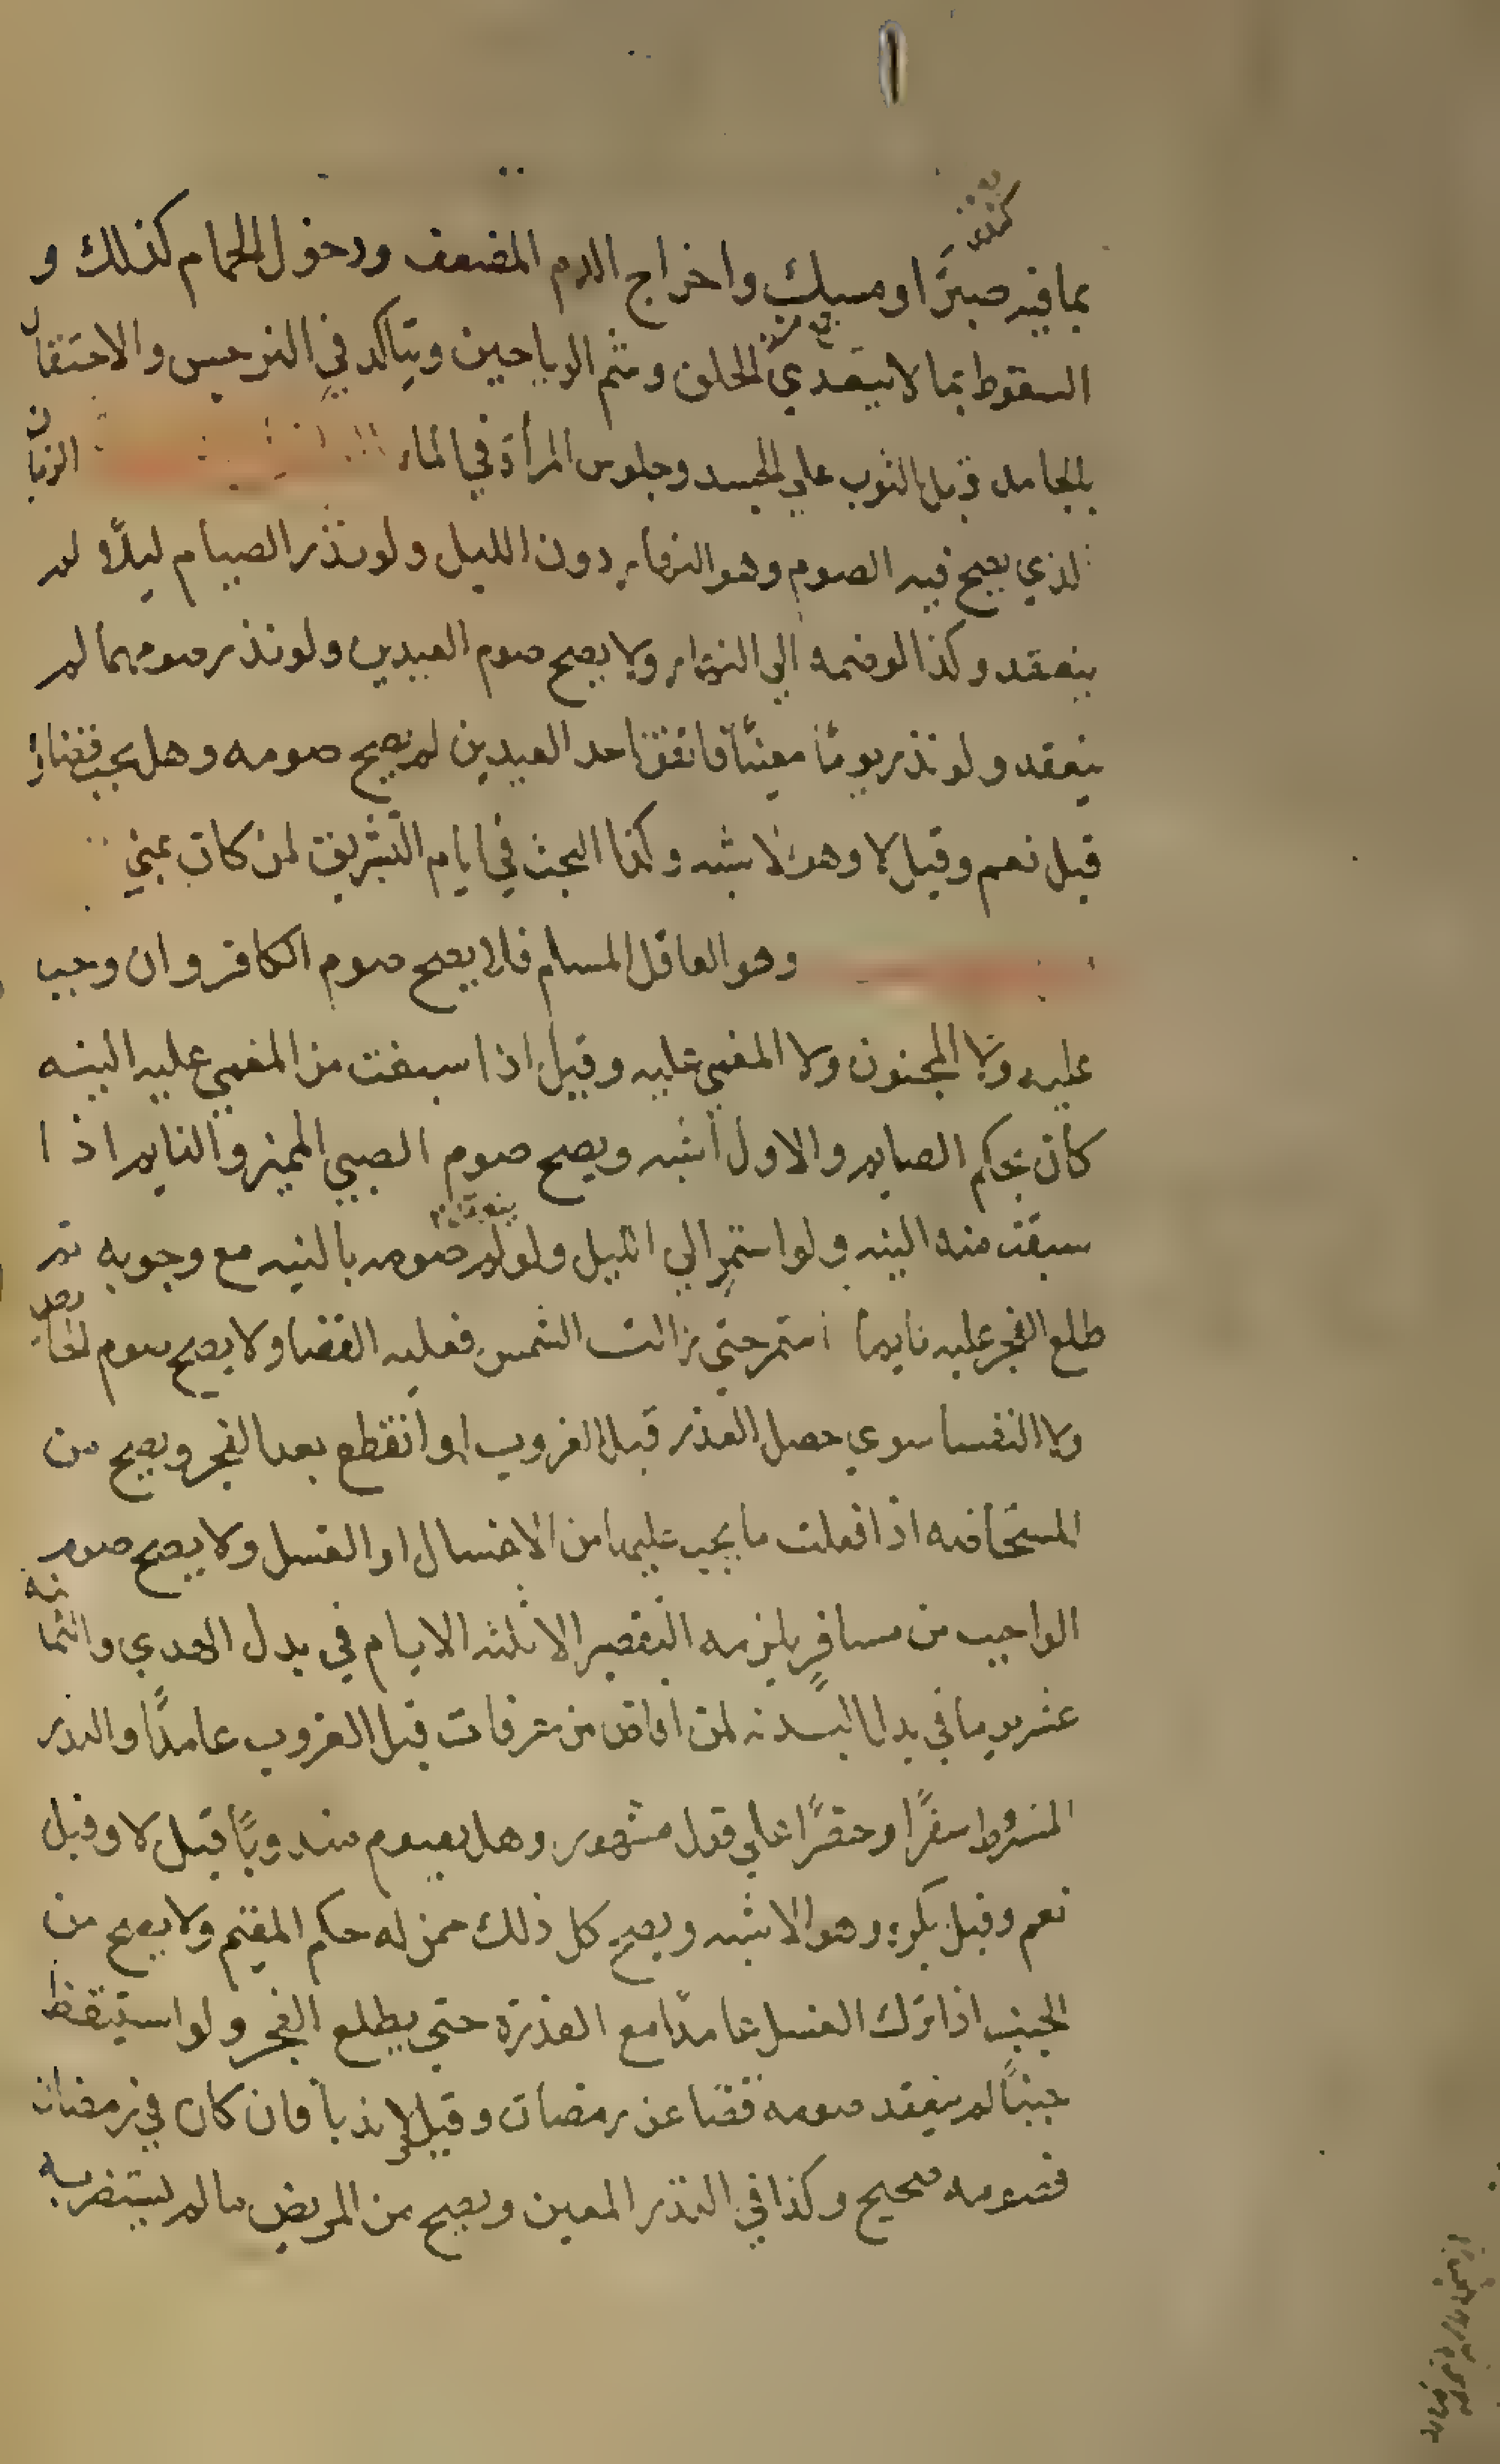 بما فيه صبرًا ومسك واخراج الدم المضعف ودخول الحمام كذلك و
السعوط بما لا يتعدي الحلق وشم الرياحين ويتاكد في النرجس والاحتقان
بالجامد وبل الثوب علي الجسد وجلوس المرأة في الماء الزمان
الذي يصح فيه الصوم وهو النهار دون الليل ولو نذر الصيام ليلًا لم
ينعقد وكذا لو ضمه الي النهار ولا يصح صوم العيدين ولو نذر صومهما لم
ينعقد ولو نذر يومًا معينًا فاتفق احد العيدين لم يصح صومه وهل يجب قضاؤه
قيل نعم وقيل لا وهو الاشبه وكذا البحث في ايام التشريق لمن كان بمني
وهو العاقل المسلم فلا يصح صوم الكافر وان وجب
عليه ولا المجنون ولا المغمي عليه وقيل اذا سبقت من المغمي عليه النيه
كان بحكم الصايم والاول اشبه ويصح صوم الصبي المميز والنايم اذا
سبقت منه النيه ولو استمر الي الليل ولو لم ينعقد صومه بالنيه مع وجوبه ثم
طلع الفجر عليه نايما استمر حتي زالت الشمس فعليه القضا ولا يصح صوم الحايض
ولا النفسا سوي حصل العذر قبل الغروب او انقطع بعد الفجر ويصح من
المستحاضه اذا فعلت ما يجب عليها من الاغسال او الغسل ولا يصح صوم
الواجب من مسافرٍ يلزمه التقصير الا ثلثه الايام في بدل الهدي والثمانيه
عشر يوما في بدل البدنه لمن افاض من عرفات قبل الغروب عامدًا والنذر
المشروط سفرًا وحضرًا علي قول مشهور وهل يصوم مندوبًا قيل لا وقيل
نعم وقيل يكره وهو الاشبه ويصح كل ذلك ممن له حكم المقيم ولا يصح من
الجنب اذا ترك الغسل عامدًا مع القدرة حتي يطلع الفجر ولو استيقظ
جنبًا لم ينعقد صومه قضا عن رمضان وقيل لا ندبا فان كان في رمضان
فصومه صحيح وكذا في النذر المعين ويصح من المريض ما لم يستضر به